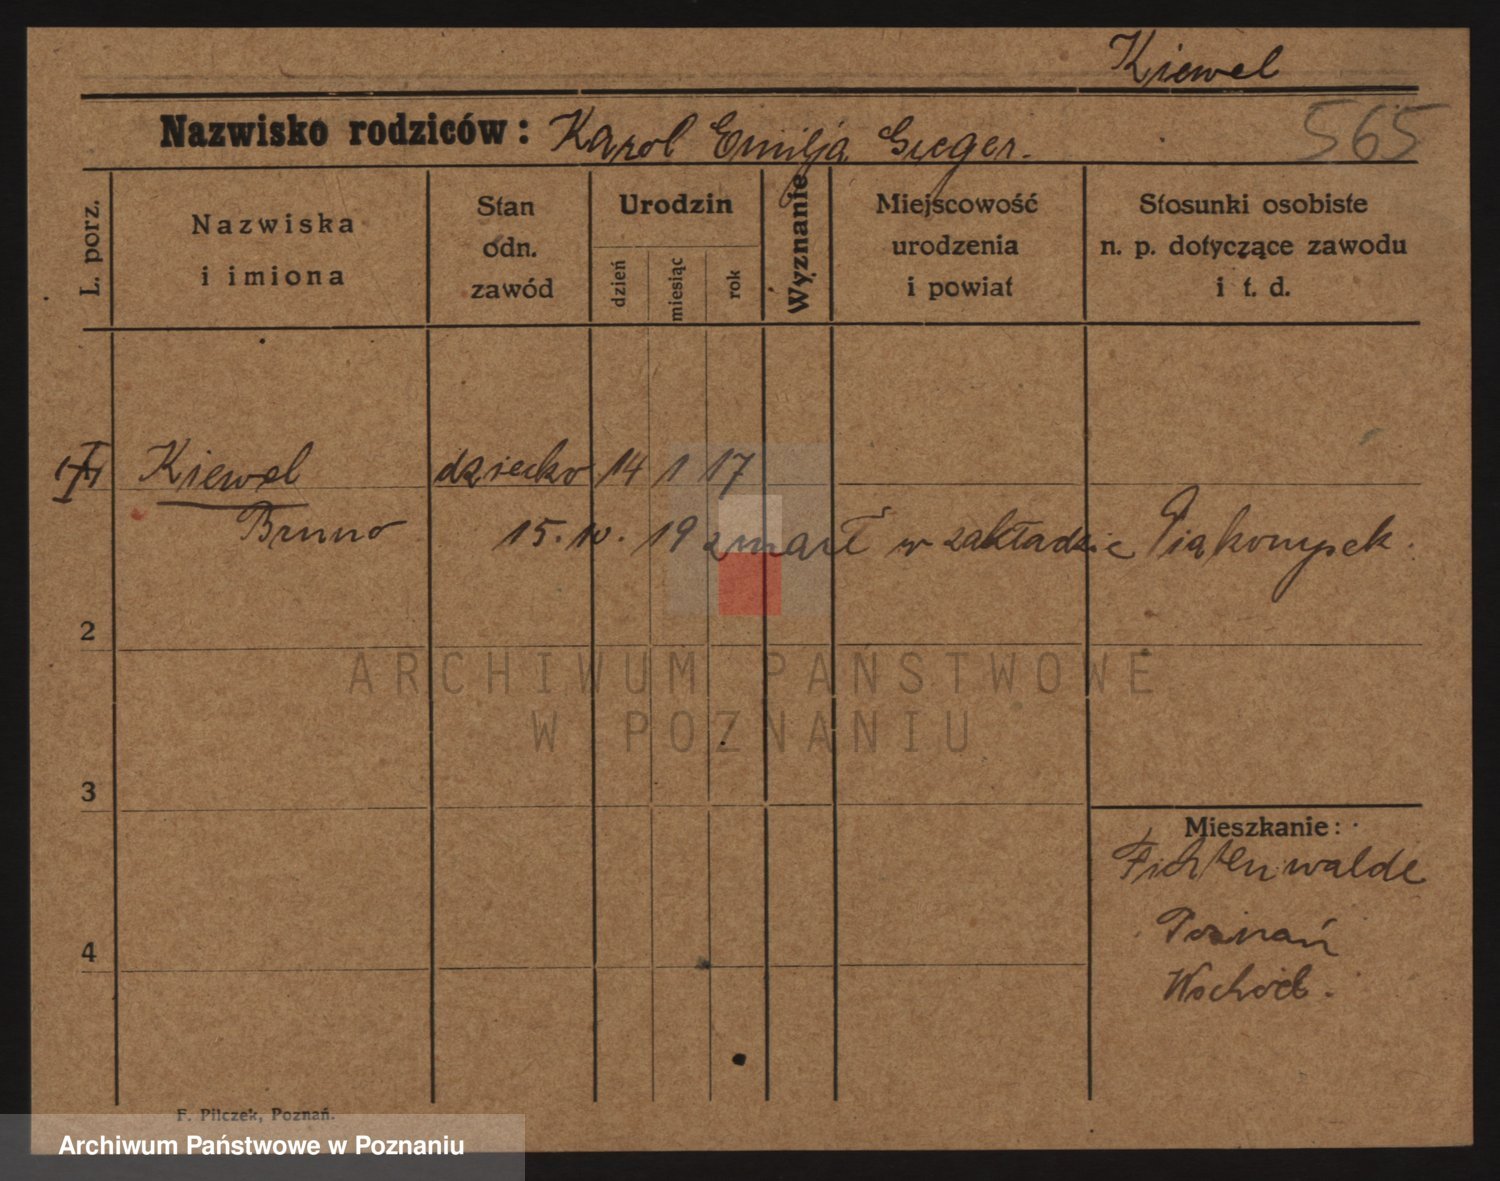 Kiewel
Nazwisko rodziców: Karol Emilja Gieger.
565
L. porz.
Nazwiska
i imiona
Stan
odn.
zawód
Urodzin
dzień
miesiąc
rok
Wyznanie
Miejscowość
urodzenia
i powiat
Stosunki osobiste
n. p. dotyczące zawodu
i t. d.
Kiewel dziecko 14 1 17
Bruno 15. 10. 19 zmarł w zakładzie
2
ARCHIWUM PAŃSTWOWE
W POZNANIU
3
Mieszkanie:
Fichtenwalde
Poznań
4
F. Pilczek, Poznań.
Archiwum Państwowe w Poznaniu